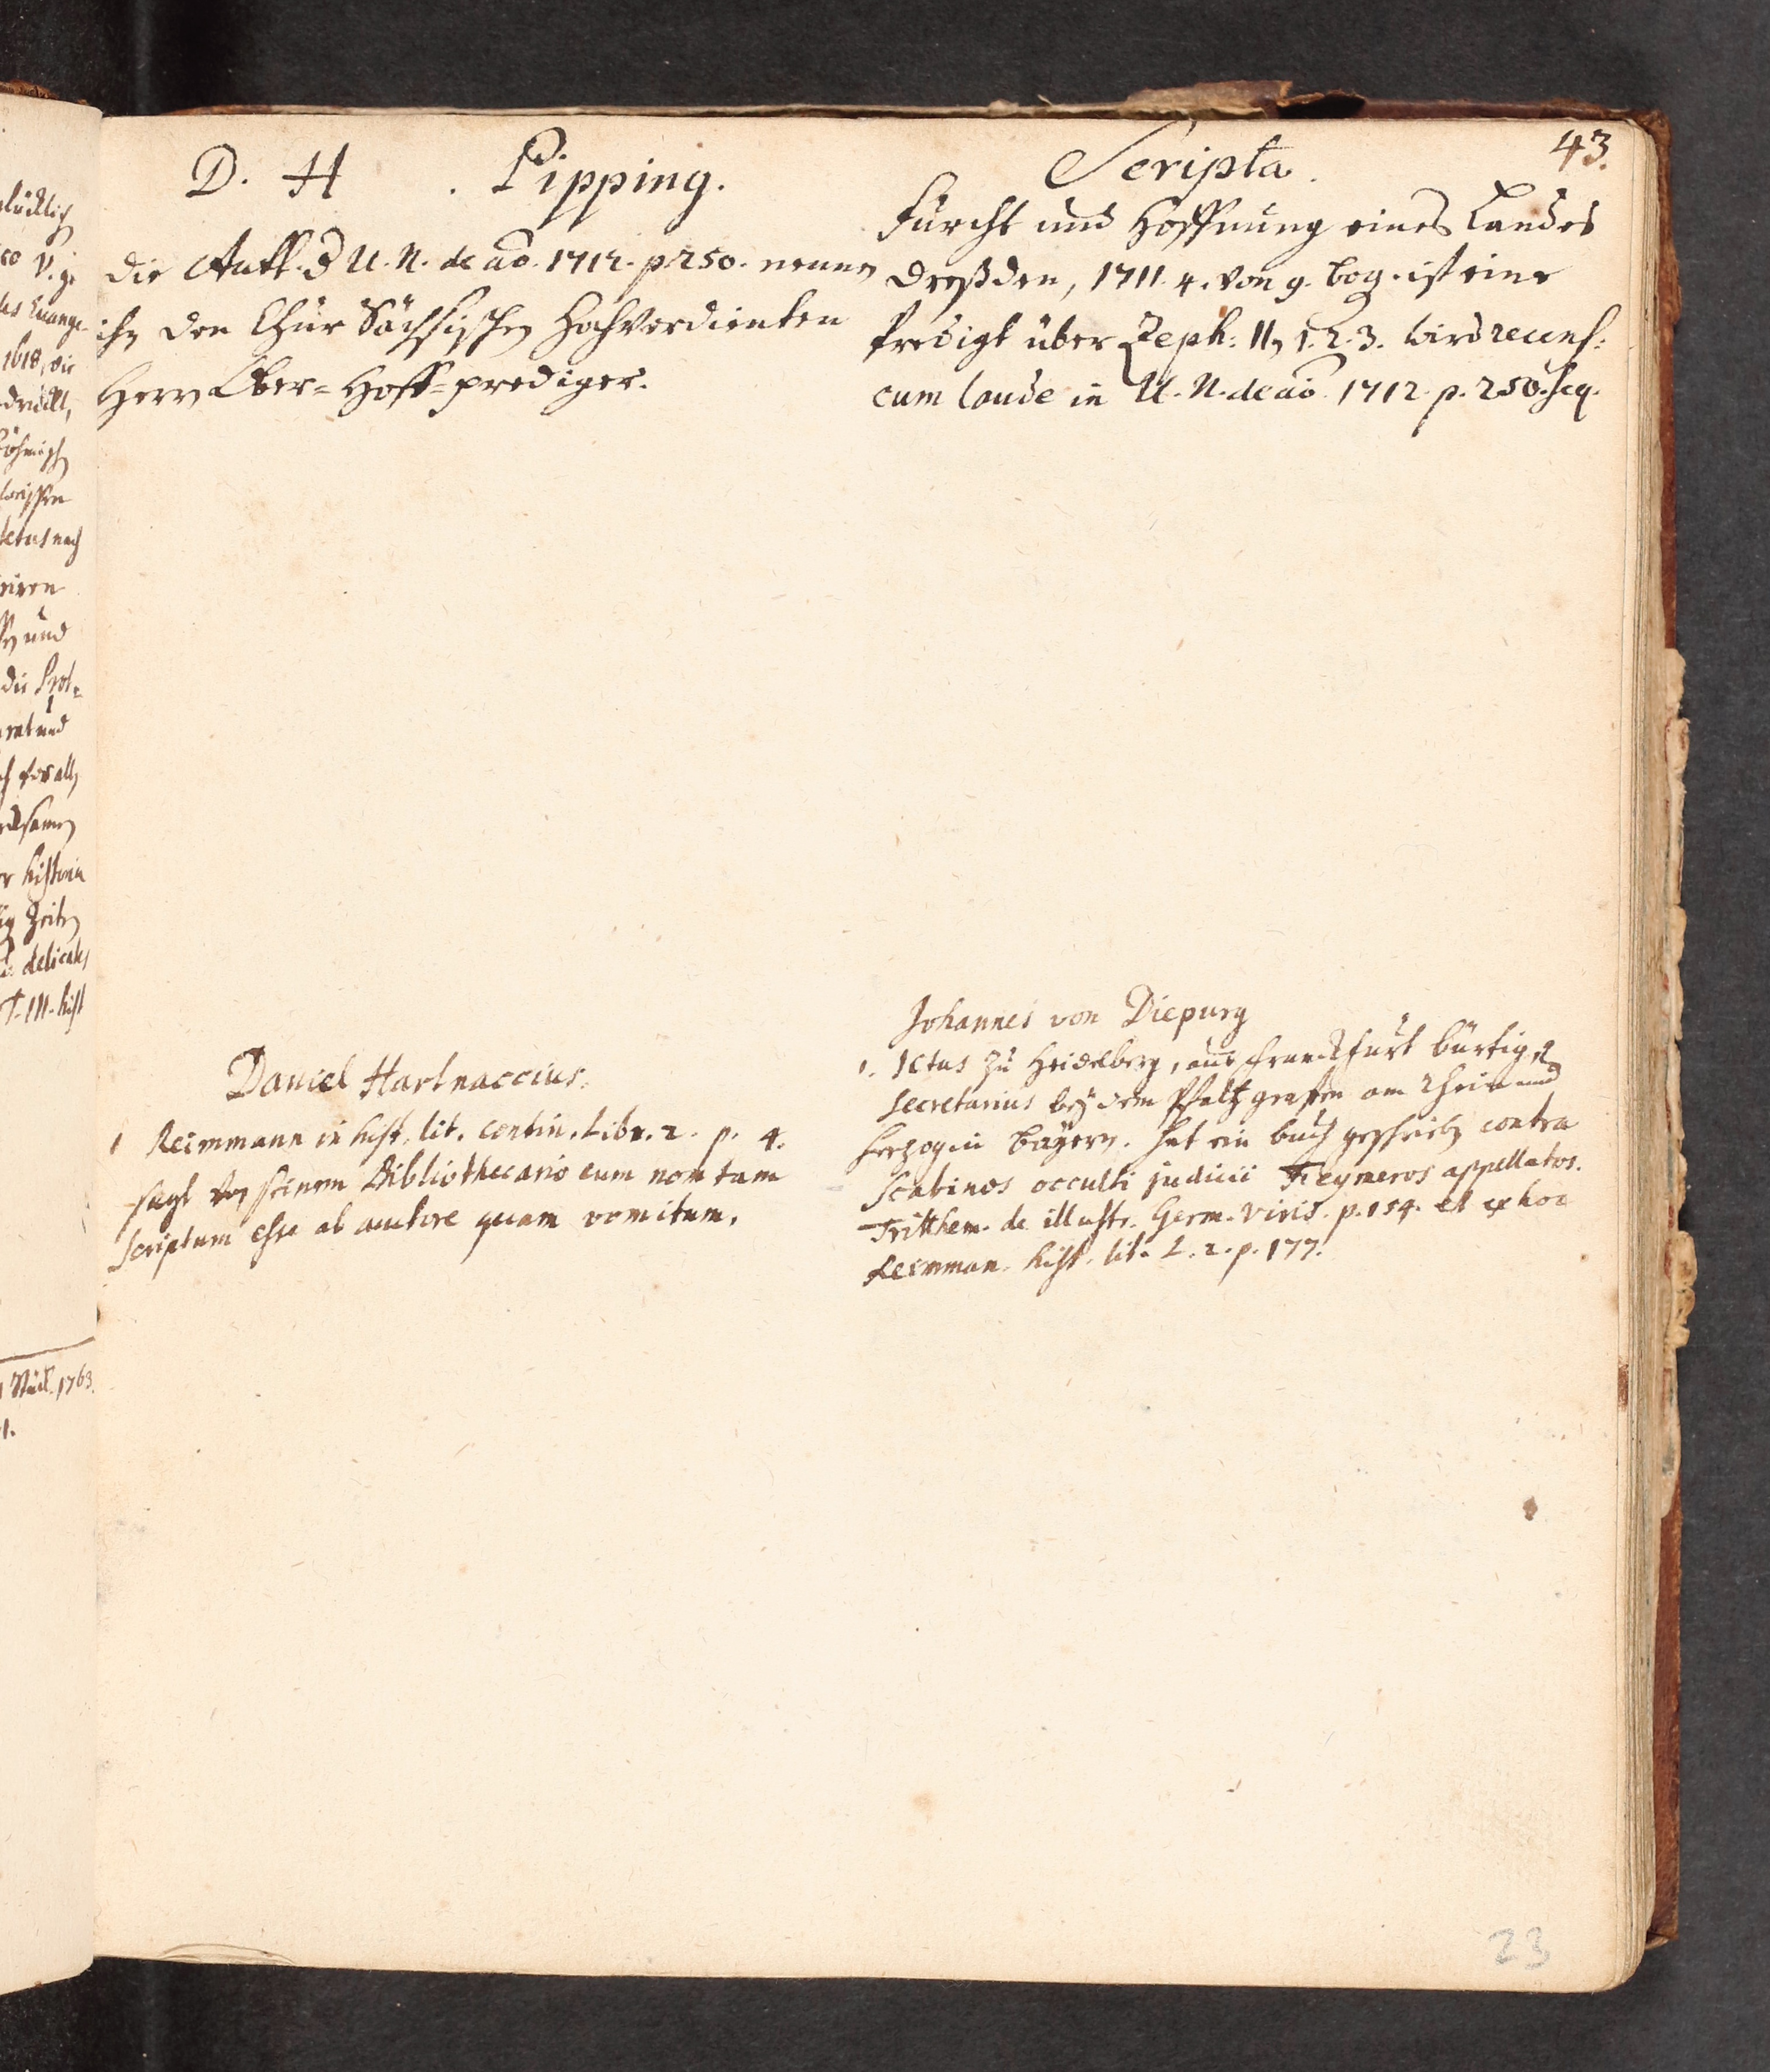 43.
D. H . Pipping.
Die Autt. d U. N. de ao. 1712. p. 250. nennen
ihn den Chur Sächsischen Hochverdienten
Herrn Ober-Hoff-prediger.
Scripta.
Furcht und Hoffnung eines Landes
Dreßden, 1711. 4. von 9. bog. ist eine
Predigt über Zeph: II, 1. 2. 3. wird recens:
cum laude in U. N. de ao. 1712. p. 250. seq.
Daniel Hartnaccius.
1 Reimmann in hist. lit. contin. Libr. 2. p. 4.
sagt von seinem Bibliothecario eum non tam
scriptum esse ab autore quam vomitum.
Johannes von Diepurg
1. Ictus zu Heidelberg, aus Franckfurt bürtig,
Secretarius bey dem Pfaltzgrafen am Rhein und
Herzog in Bayern. hat ein buch geschrieben contra
Scabinos occulti judicii Freymeros appellatos.
Tritthem. de illustr. Germ. viris. p. 154. et ex hoc
Reimman. hist. lit. L. 2. p. 177.
23
lücklich
1618, die
und
die Prot-
historia
Zeiten
delicates
T. III. hist
Stück. 1763.